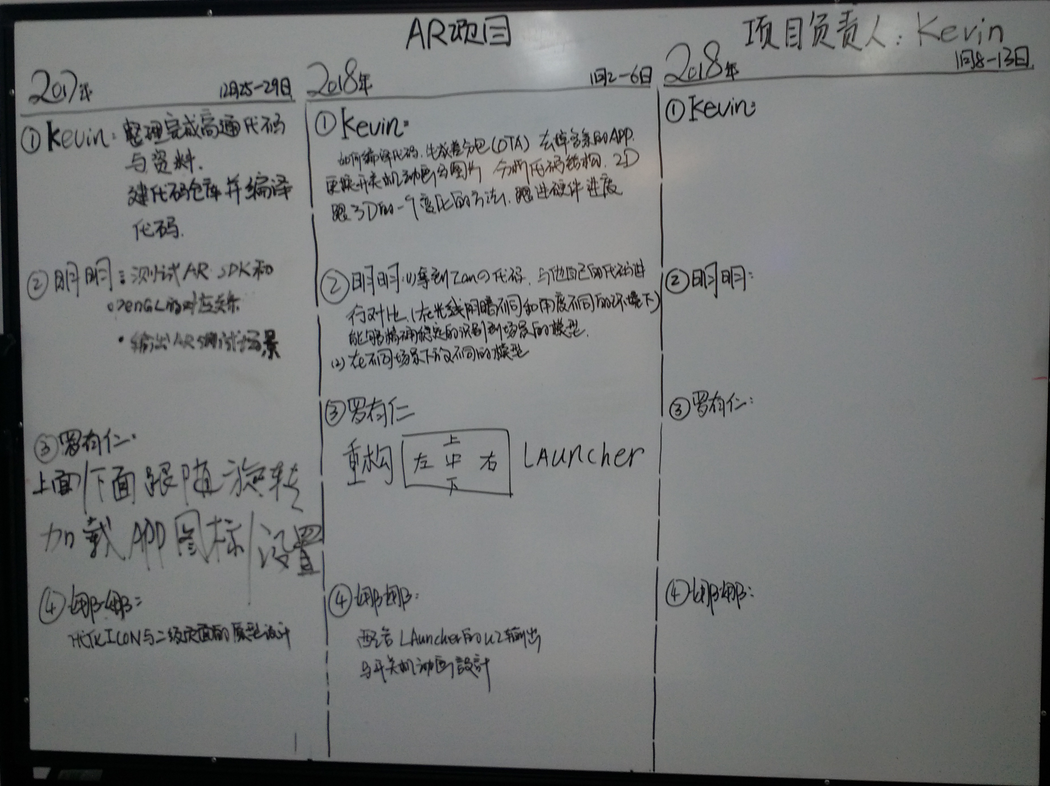 AR项目
项目负责人：Kevin
2017年 12月25-29日
①Kevin：整理完成高通代码
与资料.
建代码仓库并编译
代码.
②明明：测试AR SDK和
OpenGL的对应关系
·输出AR测试场景
③罗有仁：
上面/下面跟随旋转
加载APP图标/设置
④娜娜：
ICON与二级页面的原型设计
2018年 1月2-6日
①Kevin：
如何编译代码.生成差分包(OTA) 去掉多余的APP.
更换开关机动画与图片 分析代码结构. 2D
跟3D的一个变化的方法. 跟进硬件进度
②明明：(1)拿到Ian的代码，与他自己的代码进
行对比.(在光线明暗不同和角度不同的环境下)
能够精确稳定的识别到场景的模型.
(2)在不同场景下放不同的模型
③罗有仁
重构 上 左 中 右 下 LAuncher
④娜娜：
配合LAuncher的UI输出
与开关机动画設計
2018年 1月8-13日
①Kevin：
②明明：
③罗有仁：
④娜娜：